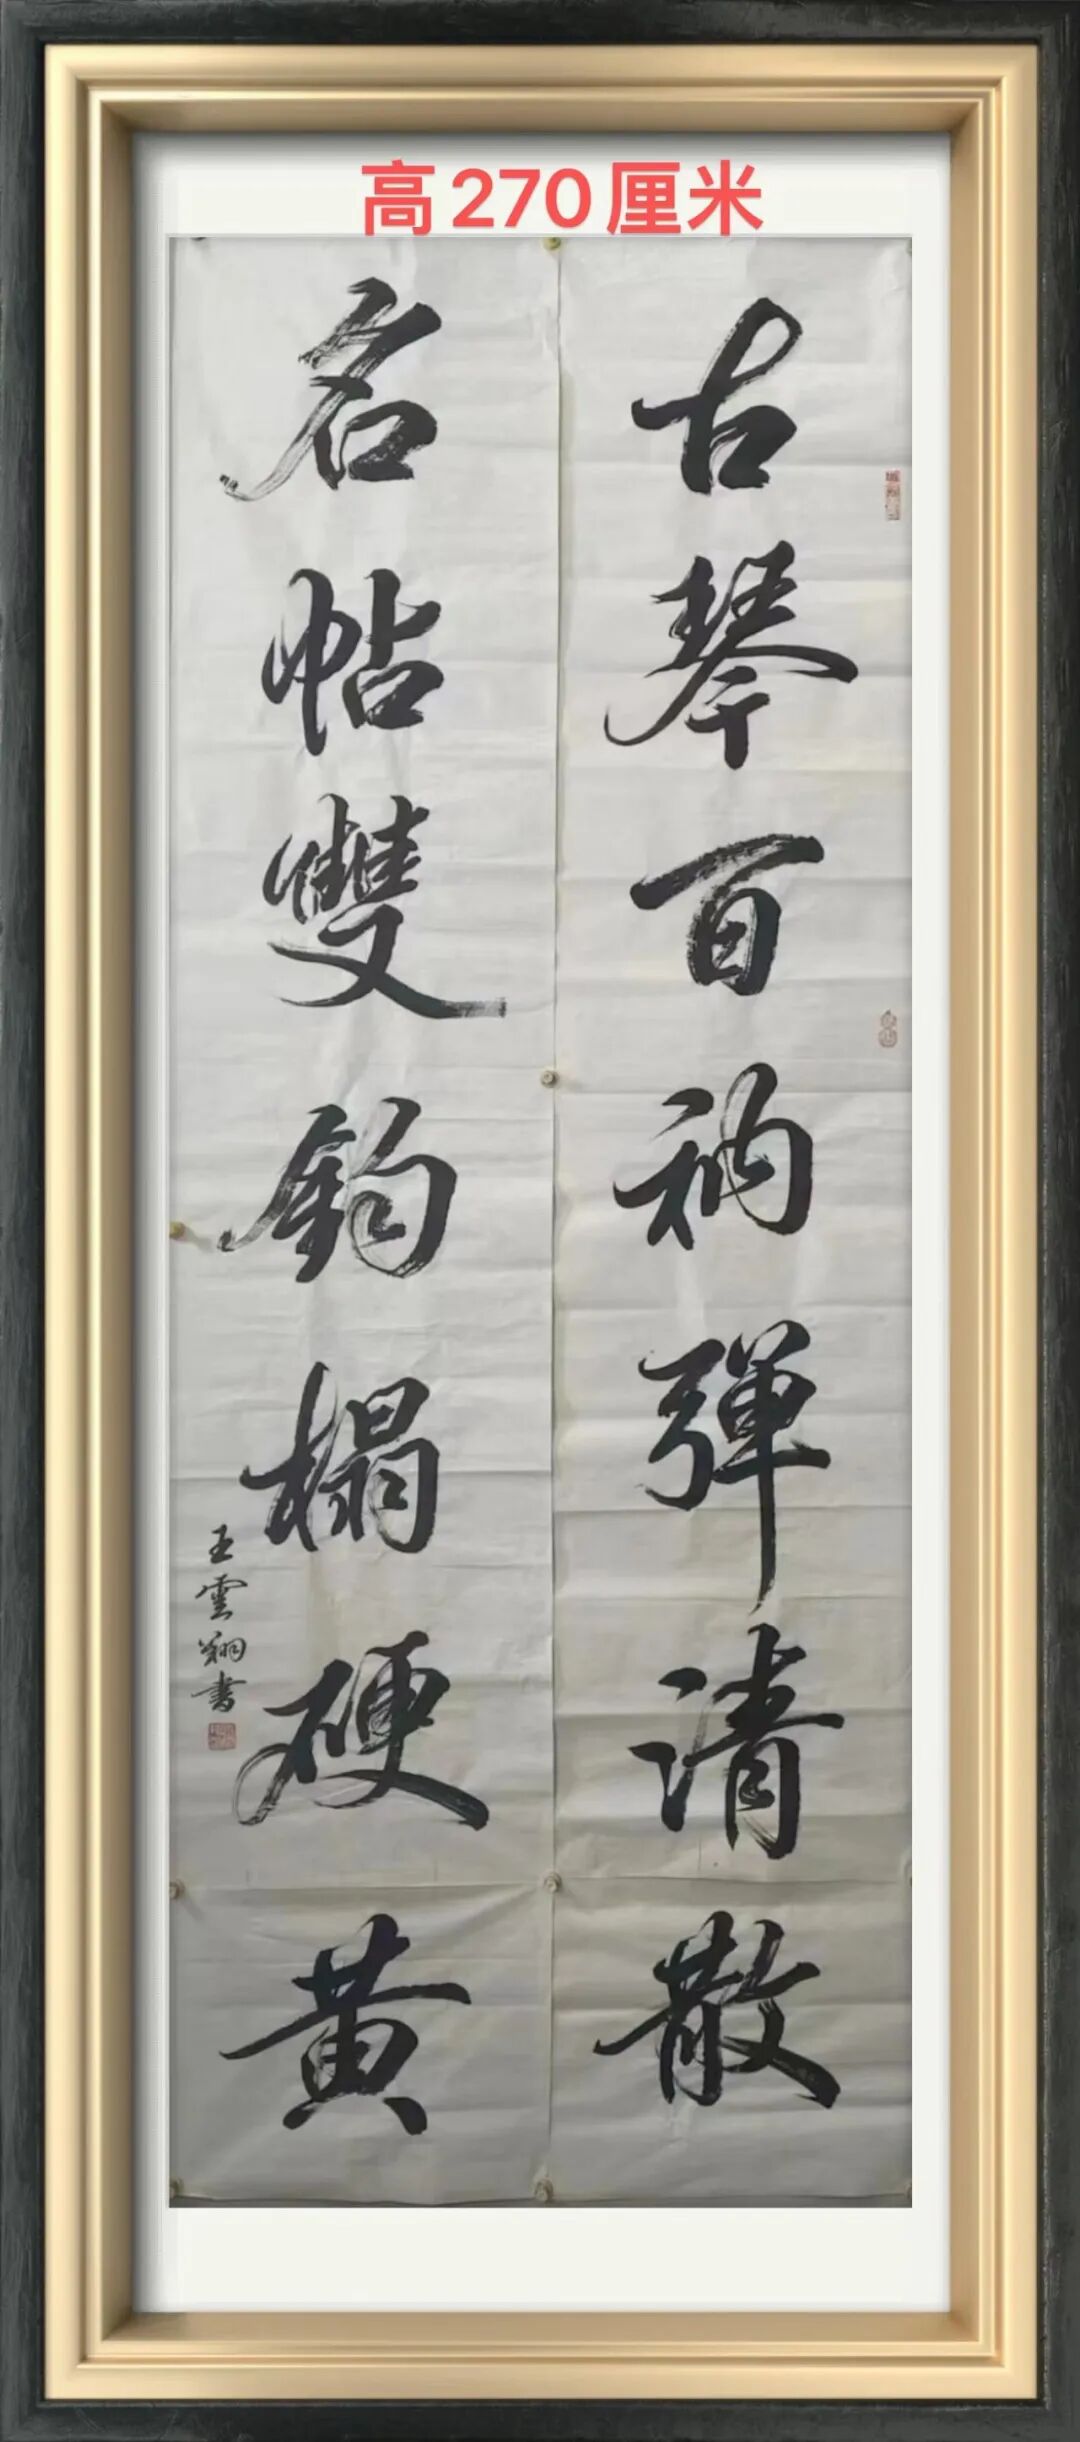 高270厘米
古琴百衲彈清散
名帖雙鈎榻硬黄
王雲翔書